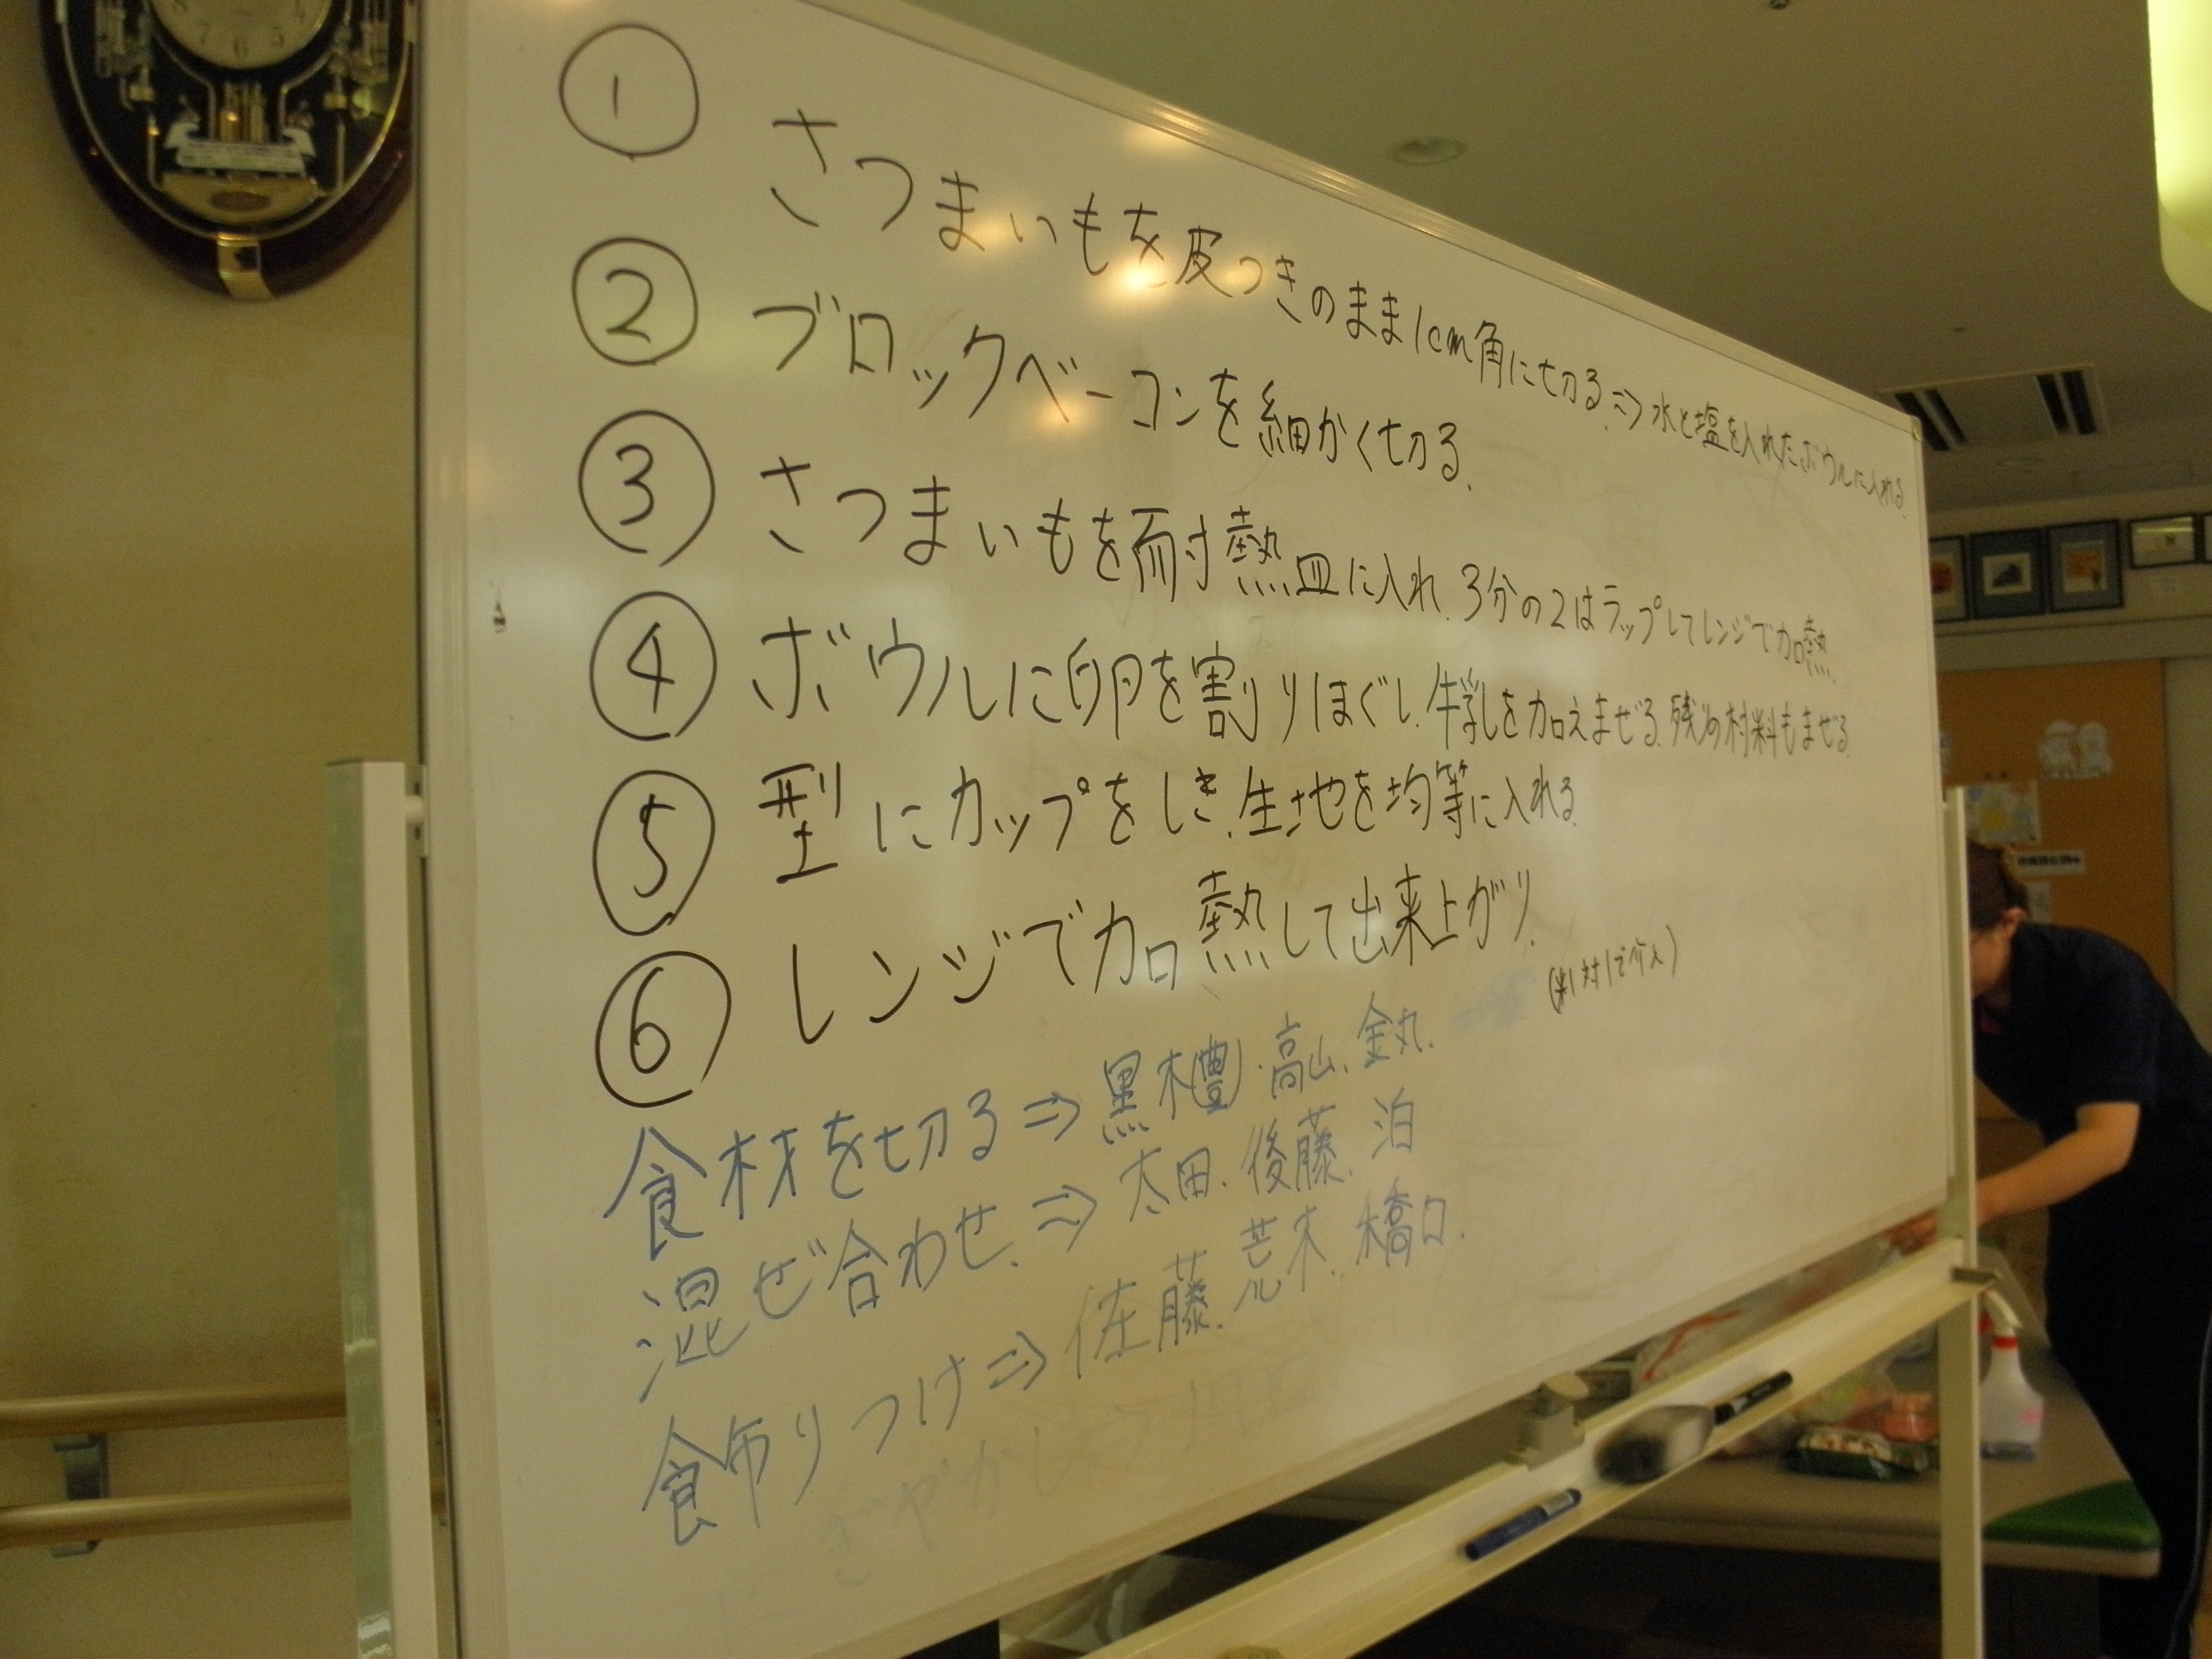 ① さつまいもを皮つきのまま1cm角に切る。⇒水と塩を入れたボウルに入れる。
② ブロックベーコンを細かく切る。
③ さつまいもを耐熱皿に入れ、3分の2はラップしてレンジで加熱。
④ ボウルに卵を割りほぐし、牛乳を加えまぜる。残りの材料もまぜる。
⑤ 型にカップをしき、生地を均等に入れる。
⑥ レンジで加熱して出来上がり。
食材を切る⇒黒木(豊)・高山、金丸、
混ぜ合わせ、⇒太田、後藤、泊
飾りつけ⇒佐藤、荒木、橋口、